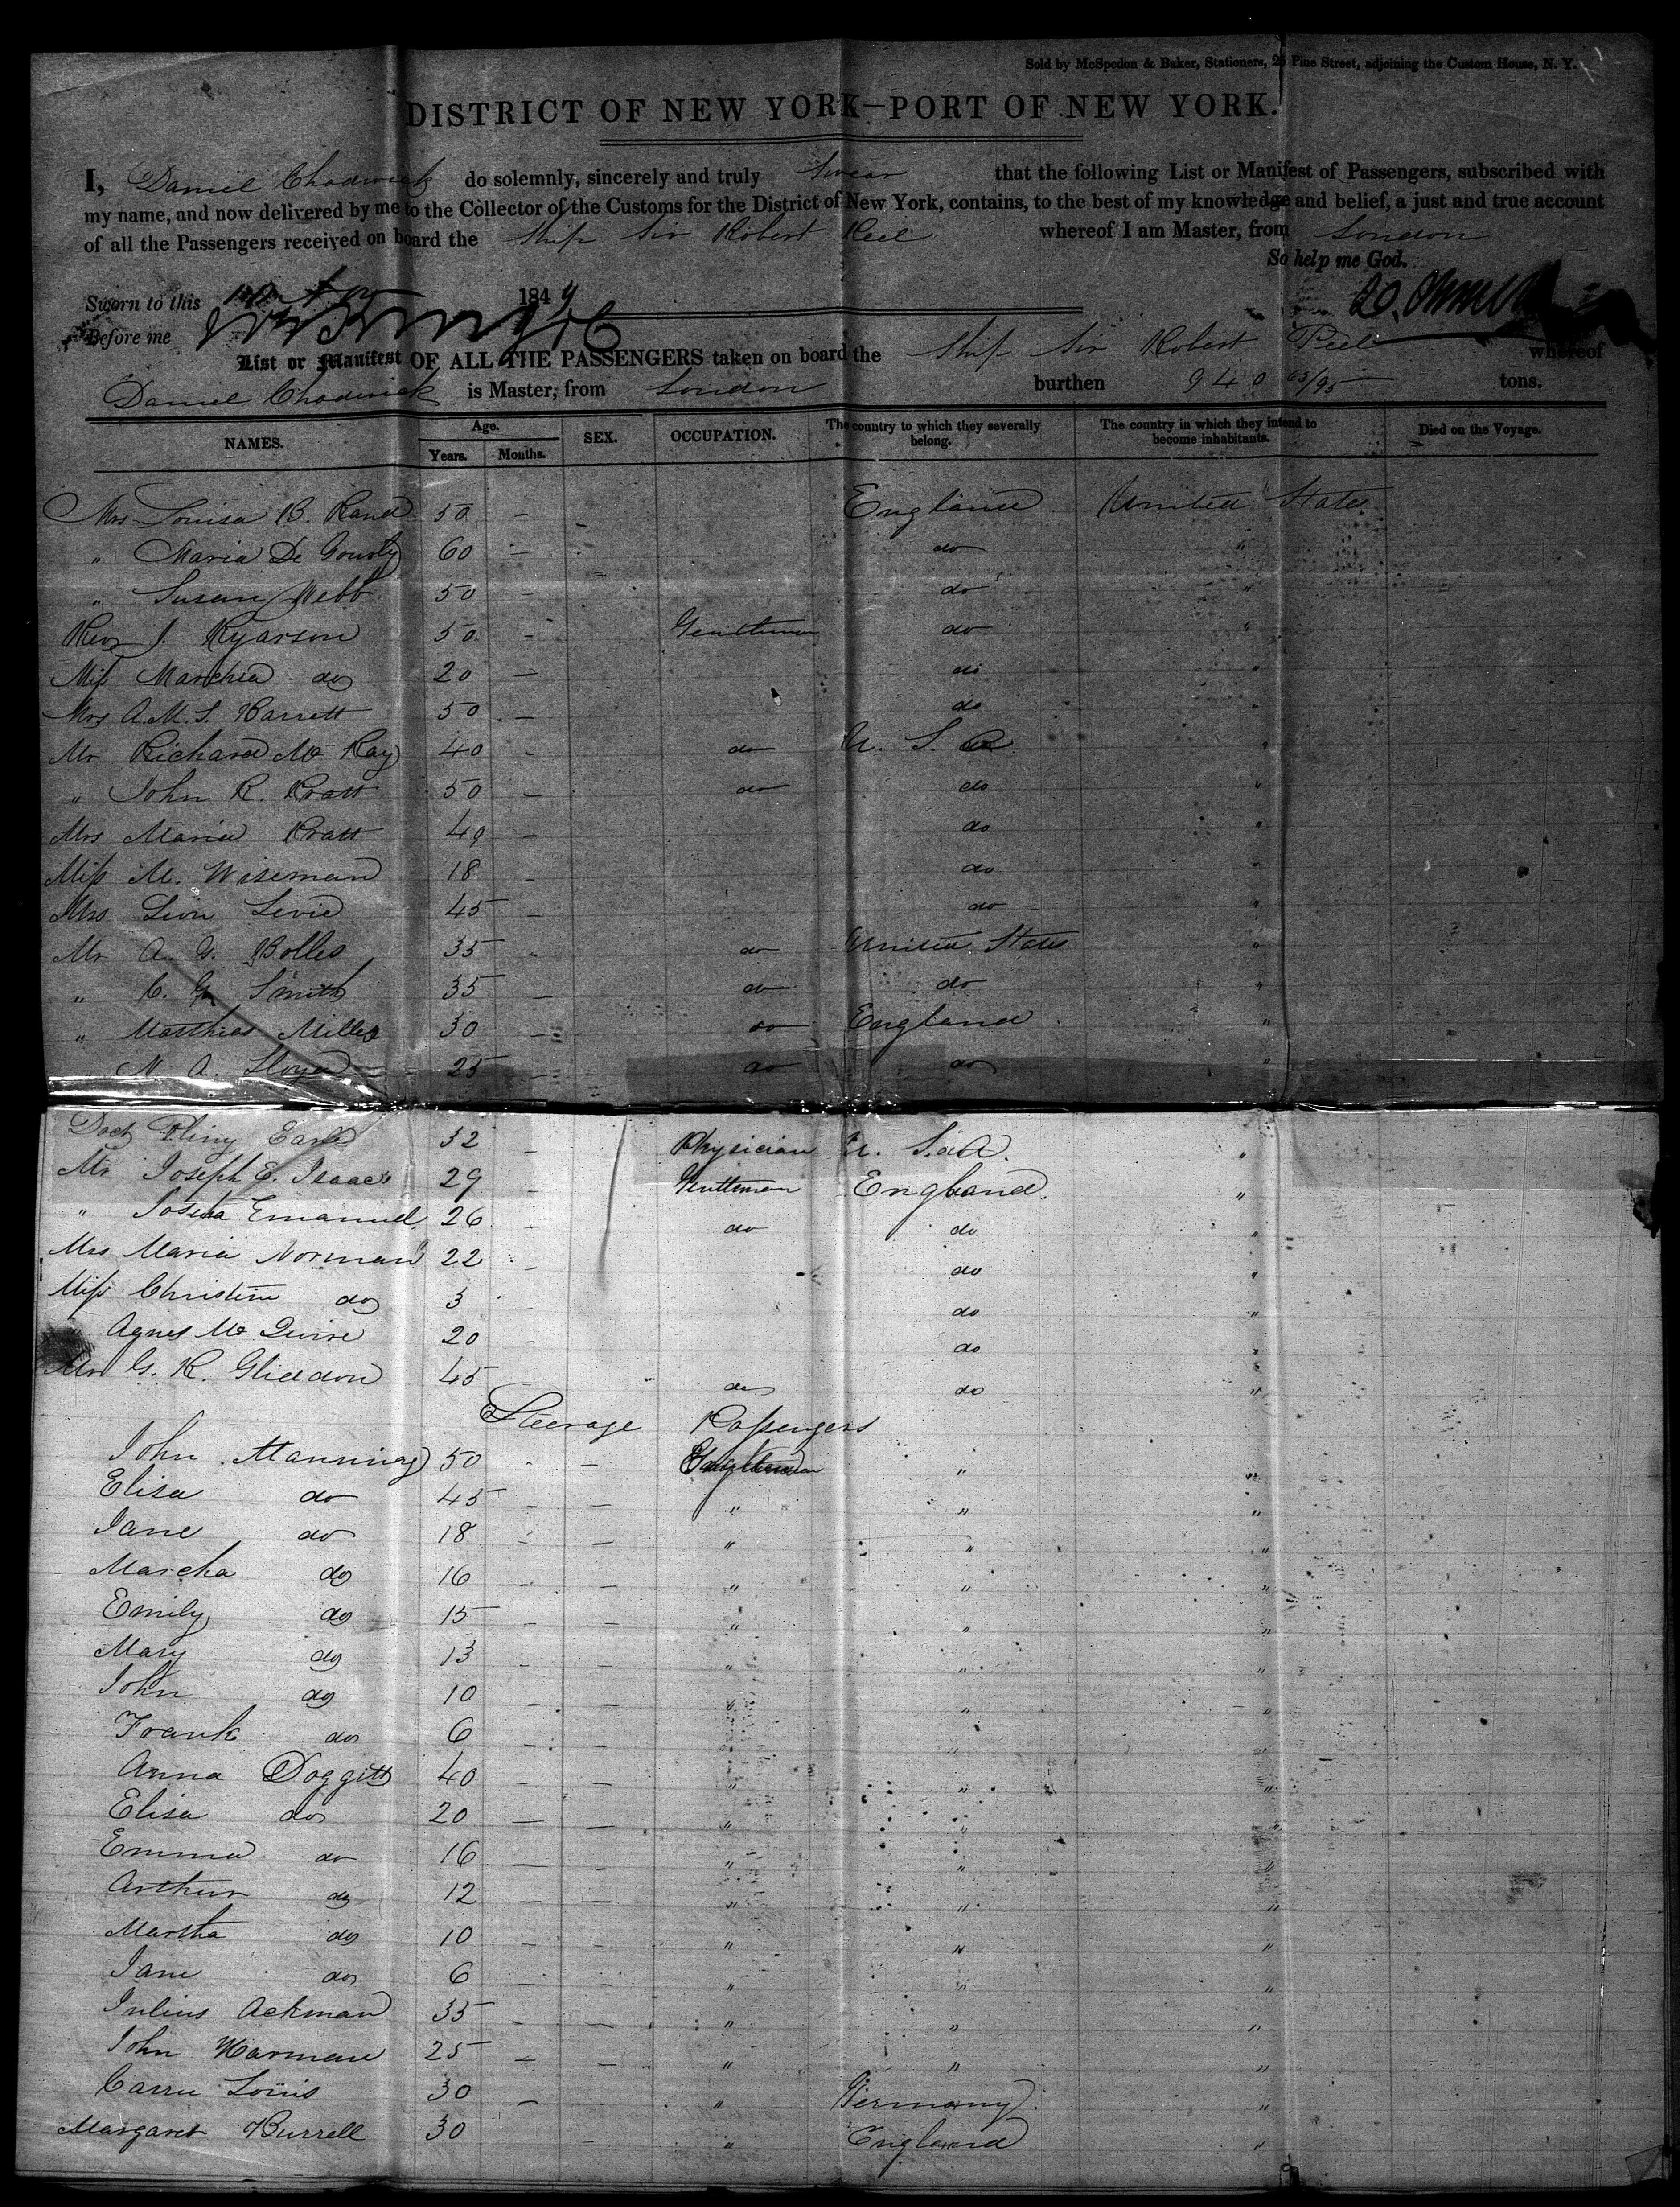 Sold by McSpedon & Baker, Stationers, 25 Pine Street, adjoining the Custom House, N. Y.
DISTRICT OF NEW YORK—PORT OF NEW YORK.
I, Daniel Chadwick do solemnly, sincerely and truly swear that the following List or Manifest of Passengers, subscribed with
my name, and now delivered by me to the Collector of the Customs for the District of New York, contains, to the best of my knowledge and belief, a just and true account
of all the Passengers received on board the Ship Sir Robert Peel whereof I am Master, from London
So help me God.
Sworn to this 184
Before me
List or Manifest OF ALL THE PASSENGERS taken on board the Ship Sir Robert Peel whereof
Daniel Chadwick is Master, from London burthen 940 63/95 tons.
NAMES. Age. Years. Months. SEX. OCCUPATION. The country to which they severally belong. The country in which they intend to become inhabitants. Died on the Voyage.
Mrs Louisa B. Rand 50 — England United States
" Maria De 60 — do "
" Susan Webb 50 — do "
Rev J. 50 — Gentleman do "
Miss do 20 — do "
Mrs A. M. S. 50 — do
Mr Richard Mc Kay 40 — do U. S. "
" John R. Pratt 50 — do do "
Mrs Maria Pratt 49 — do "
Miss M. Wiseman 18 - do "
Mrs Levie 45 — do "
Mr A. G. Bolles 35 - do United States "
" C. G. Smith 35 — do do "
" Matthias 30 — do England "
M A. Lloyd 25 — do do "
Doct Pliny Earle 32 — Physician U. S. A. "
Mr Joseph E. Isaacs 29 - Gentleman England. "
" Emanuel 26 - do do "
Mrs Maria Norman 22 - do "
Miss Christine do 3 - do "
Agnes Mc 20 - do "
Mr G. R. Gliddon 45 do do "
Steerage Passengers
John Manning 50 - — " "
Elisa do 45 — — " " "
Jane do 18 - — " " "
do 16 - — " " "
Emily do 15 - — " " "
Mary do 13 — — " " "
John do 10 — — " " "
Frank do 6 — — " " "
Anna Doggett 40 — — " " "
Elisa do 20 — — " " "
Emma do 16 — — " " "
Arthur do 12 — — " " "
Martha do 10 — — " " "
Jane do 6 — — " " "
Julius Ackman 35 — — " " "
John Harman 25 — — " " "
Louis 30 — " Germany "
Margaret Burrell 30 — " England "